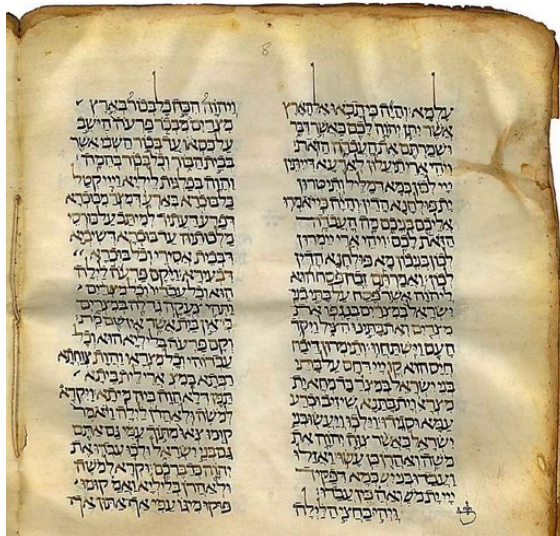 8
עלמא והיה כי תבאו אל הארץ
אשר יתן יהוה לכם כאשר דבר
ושמרתם את העבדה הזאת
ויהי ארי תעלון לארעא דייתין
ייי לכון כמא דמליל ותיטרון
ית פולחנא הדין והיה כי יאמרו
אליכם בניכם מה העבדה
הזאת לכם ויהי ארי יימרון
לכון בניכון מא פולחנא הדין
לכון ואמרתם זבח פסח הוא
ליהוה אשר פסח על בתי בני
ישראל במצרים בנגפו את
מצרים ואת בתינו הציל ויקד
העם וישתחוו ותימרון דיבח
חייס הוא קדם ייי דרחם על בתי
בני ישראל במצרים כד מחא ית
מצראי וית בתנא שיזיב וכרע
עמא וסגידו וילכו ויעשו בני
ישראל כאשר צוה יהוה את
משה ואהרן כן עשו ואזלו
ועבדו בני ישראל כמא דפקיד
ייי ית משה ואהרן כין עבדו
ויהי בחצי הלילה
ויהוה הכה כל בכור בארץ
מצרים מבכר פרעה הישב
על כסאו עד בכור השבי אשר
בבית הבור וכל בכור בהמה
והוה בפלגות ליליא וייי קטל
כל בוכרא בארעא דמצרים מבוכרא
דפרעה עתיד למיתב על כורסי
מלכותיה עד בוכרא דשיביא
דבבית אסירי וכל בוכרא
דבעירא ויקם פרעה לילה
הוא וכל עבדיו וכל מצרים
ותהי צעקה גדלה במצרים
כי אין בית אשר אין שם מת
וקם פרעה בליליא הוא וכל
עבדוהי וכל מצראי והות צוחתא
רבתא במצרים ארי לית ביתא
דלא הוה ביה מיתא ויקרא
למשה ולאהרן לילה ויאמר
קומו צאו מתוך עמי גם אתם
גם בני ישראל ולכו עבדו את
יהוה כדברכם וקרא למשה
ולאהרן בליליא ואמר קומו
פוקו מיגו עמי אף אתון אף